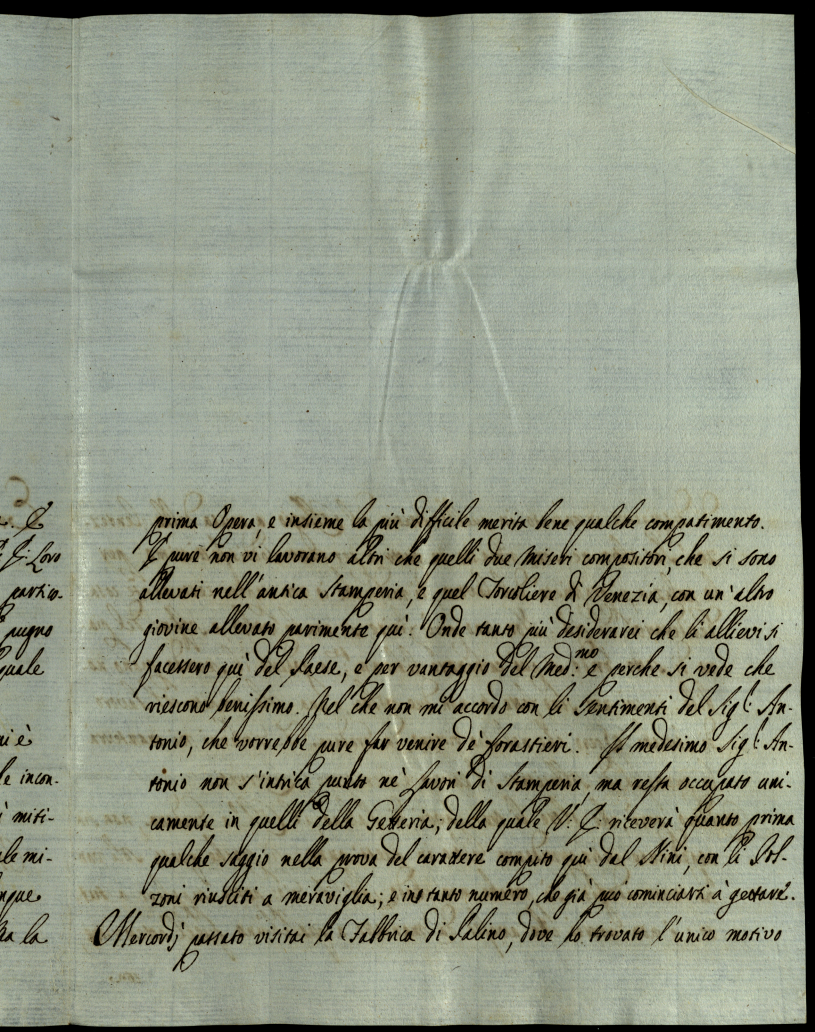 . E
E: Loro
partico-
pugno
quale
ni è
le incon-
i miti-
ale mi-
nque
la
prima Opera, e insieme la più difficile merita bene qualche compatimento.
E pure non vi lavorano altri che quelli due miseri compositori, che si sono
allevati nell'antica Stamperia, e quel Torcoliere di Venezia, con un'altro
giovine allevato parimente quì. Onde tanto più desiderarei che li allievi si
facessero quì del Paese, e per vantaggio del Med:mo e perche si vede che
riescono benissimo. Nel che non mi accordo con li Sentimenti del Sig.l: An-
tonio, che vorrebbe pure far venire de' forastieri. Il medesimo Sig.l: An-
tonio non s'intrica punto nè Lavori di Stamperia, ma resta occupato uni-
camente in quelli della Getteria; della quale V: E: riceverà quanto prima
qualche saggio nella prova del carattere compito quì dal Nini, con li Pol-
zoni riusciti a meraviglia; e in tanto numero, che già può cominciarsi à gettare.
Mercordì passato visitai la Fabbrica di Salino, dove ho trovato l'unico motivo